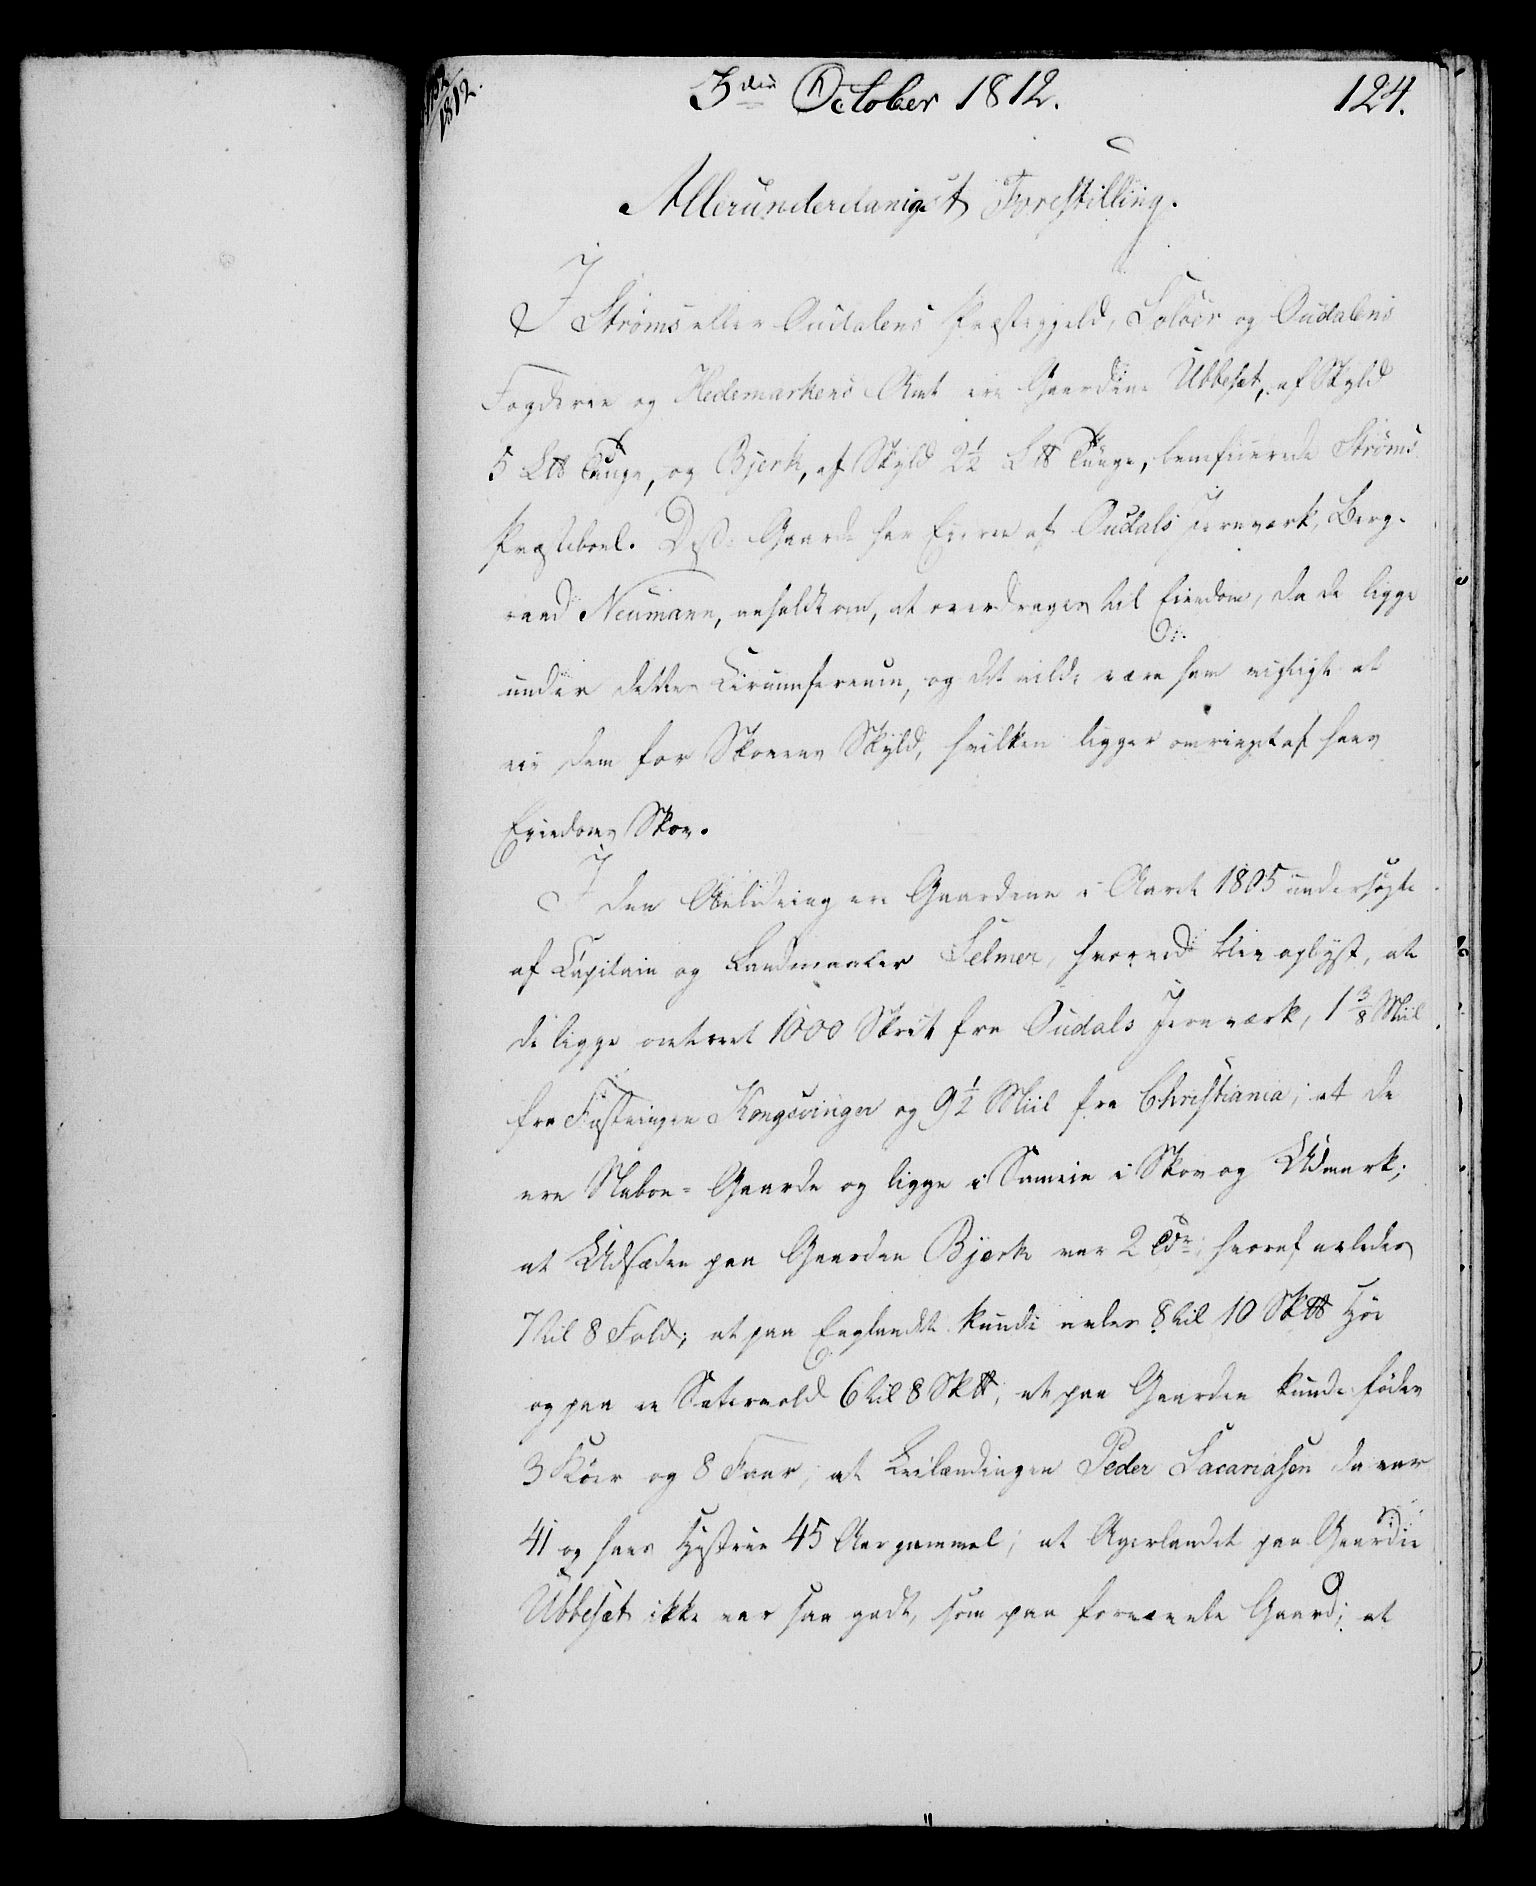 3die October 1812.
124.
1812.
Allerunderdanigst Forestilling.
I Strøms eller Oudalens Præstegjeld, Soløer og Oudalens
Fogderie og Hedemarkens Amt ere Gaardene Ubbeset, af Skyld
5 L℔ Tunge, og Bjerk, af Skyld 2½ L℔ Tunge, beneficerede Strøms
Præsteboel. Disse Gaarde har Eieren af Oudals Jernværk, Berg-
raad Neumann, anholdt om, at overdrages til Eiendom, da de ligge
under dettes Circumference, og det vilde være ham vigtigt at
eie dem for Skovens Skyld, hvilken ligger omringet af hans
Eiendoms Skov.
I den Anledning ere Gaardene i Aaret 1805 undersøgte
af Capitain og Landmaaler Selmer, hvorved blev oplyst, at
de ligge omtrent 1000 Skrit fra Oudals Jernværk, 1 3/8 Miil
fra Fæstningen Kongsvinger og 9½ Miil fra Christiania; at de
ere Naboe-Gaarde og ligge i Sameie i Skov og Udmark;
at Udsæden paa Gaarden Bjerk var 2 Tdr, hvoraf avledes
7 til 8 Fold; at paa Englandet kunde avles 8 til 10 Sk℔ Høe
og paa en Setervold 6 til 8 Sk℔, at paa Gaarden kunde fødes
3 Køer og 8 Faar; at Leilændingen Peder Sacariasen da var
41 og hans Hustrue 45 Aar gammel; at Agerlandet paa Gaarden
Ubbeset ikke var saa godt, som paa fornævnte Gaard; at